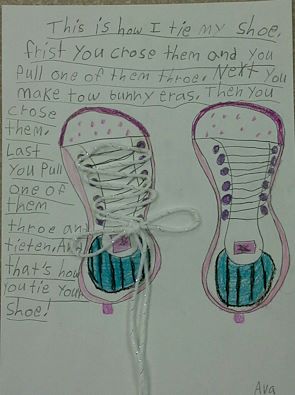 This is how I tie my shoe.
frist you crose them and you
pull one of them throe. Next you
make tow bunny eras. Then you
crose
them.
Last
you pull
one of
them
throe and
tieten. And
that's how
you tie your
shoe!
Ava